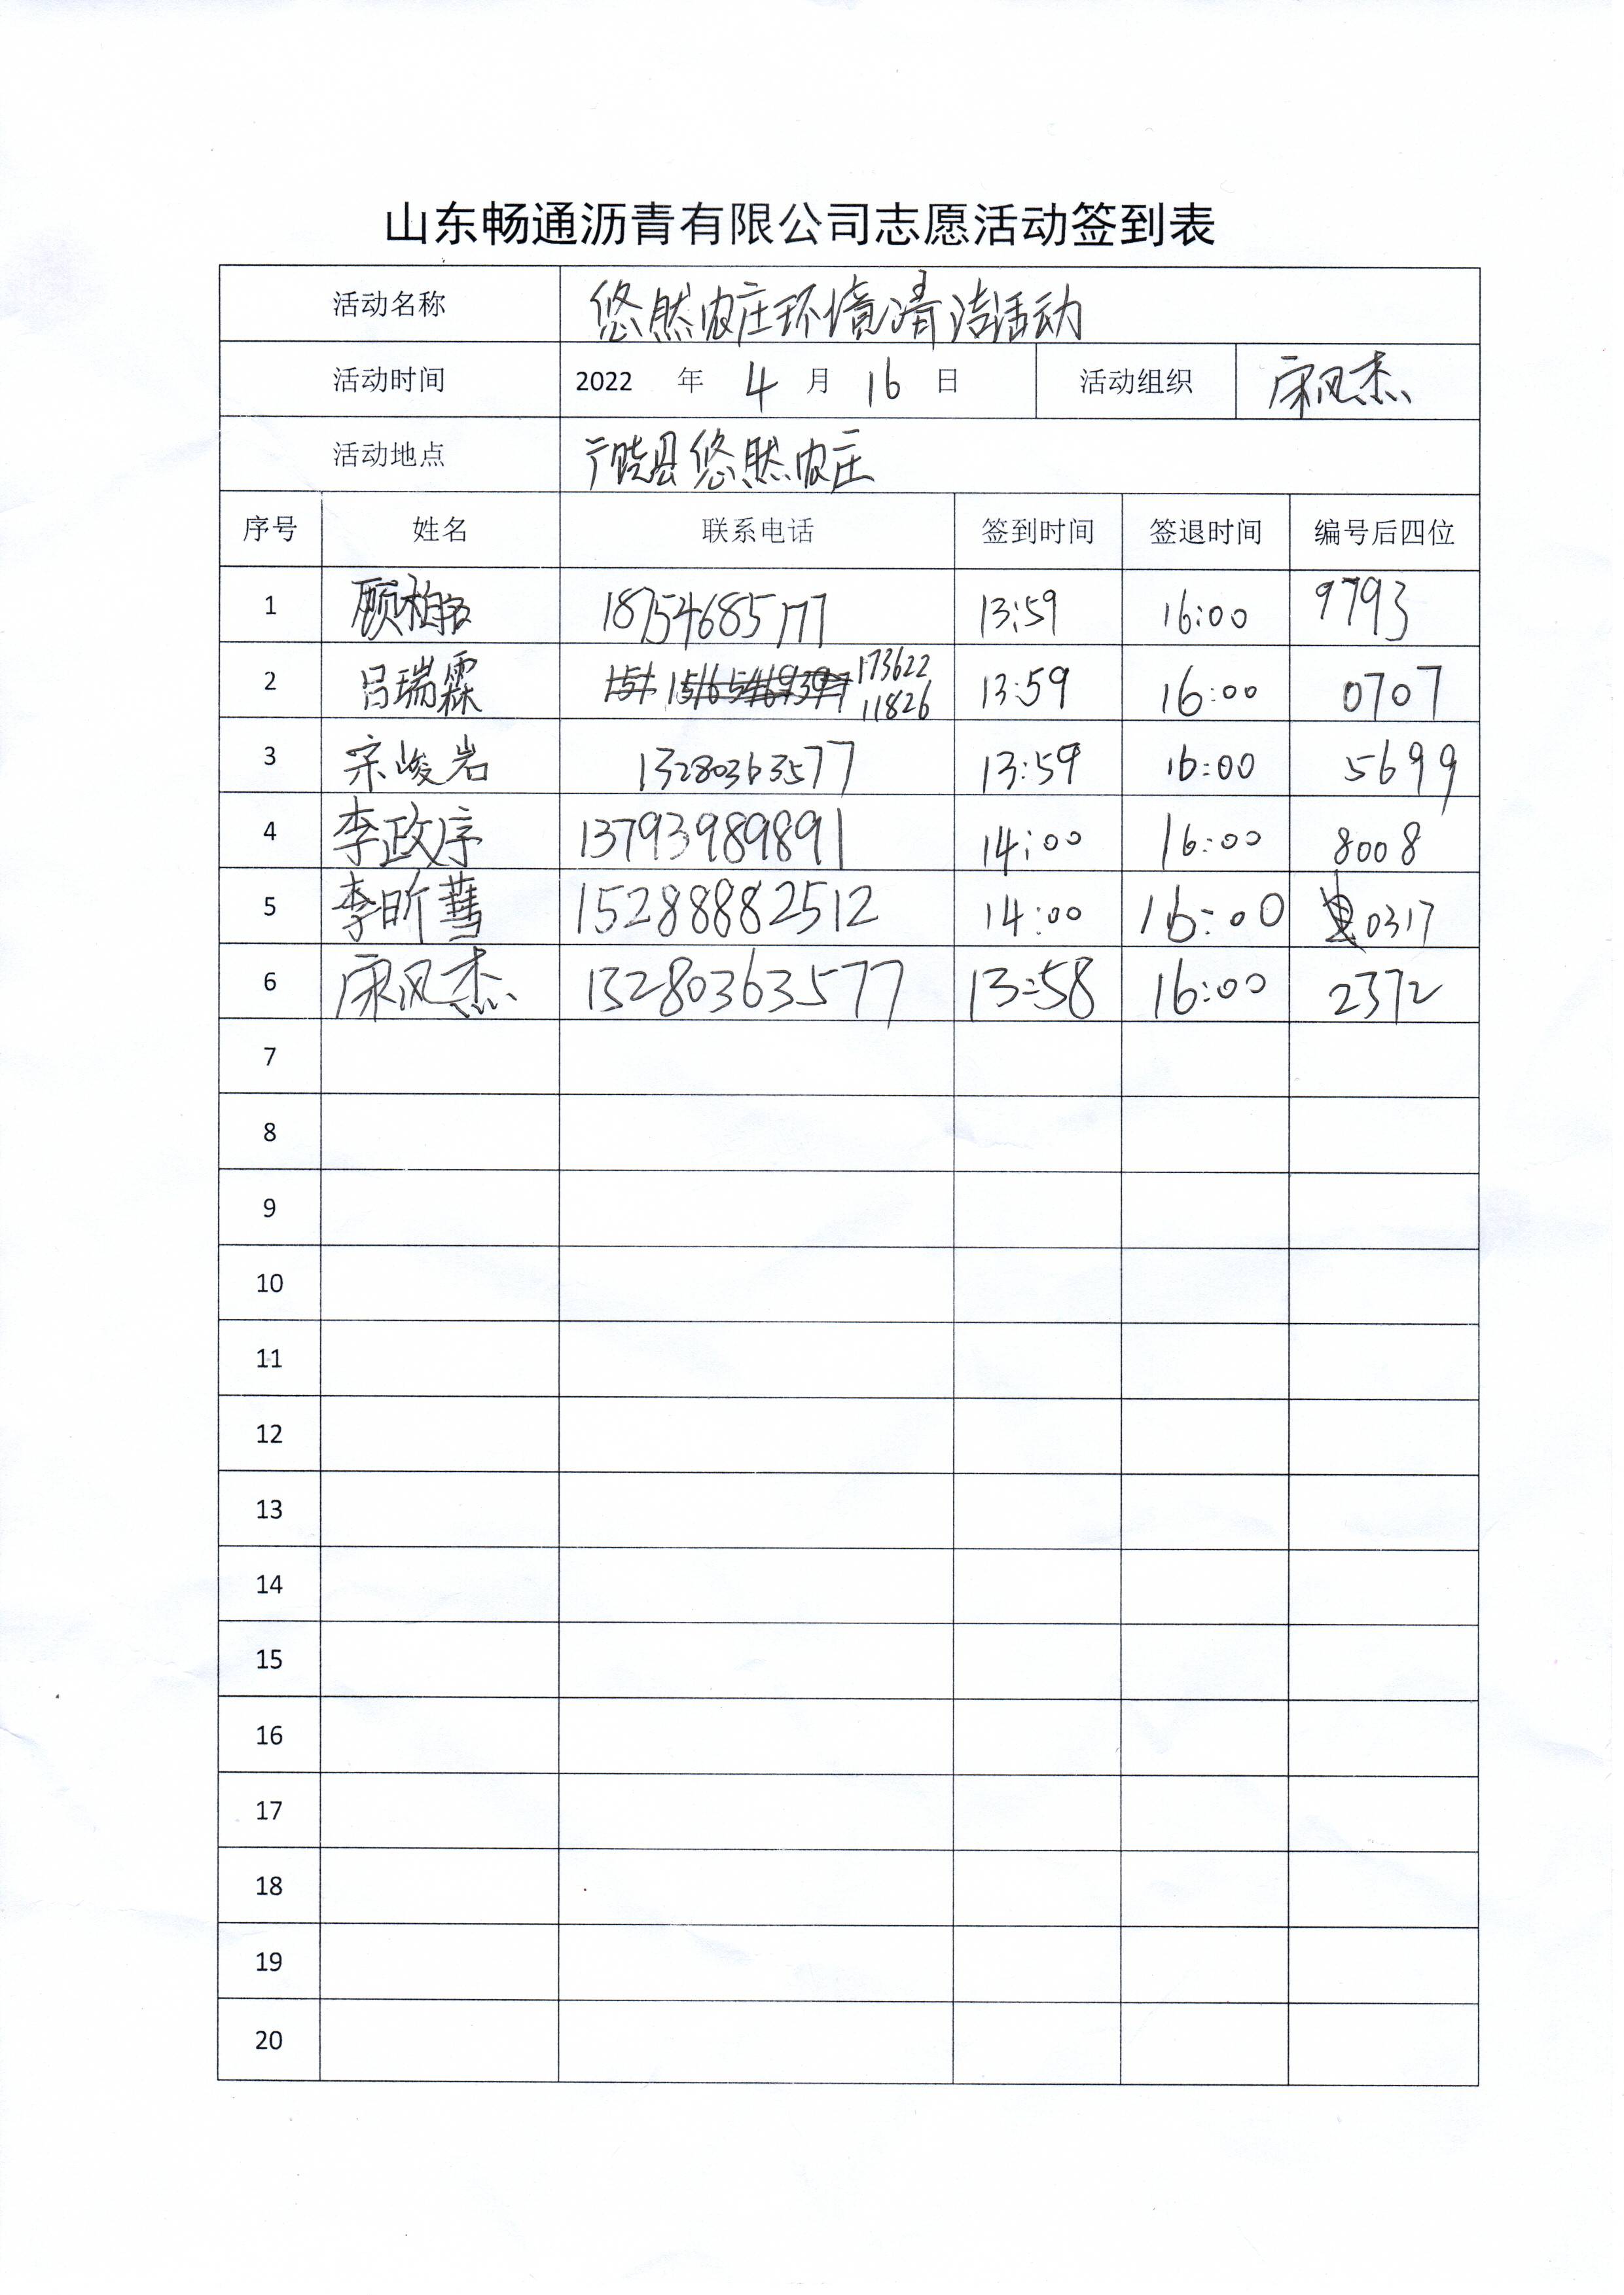 山东畅通沥青有限公司志愿活动签到表
活动名称 悠然农庄环境清洁活动
活动时间 2022 年 4 月 16 日 活动组织 宋风杰
活动地点 广饶县悠然农庄
序号 姓名 联系电话 签到时间 签退时间 编号后四位
1 顾柏 18754685777 13:59 16:00 9793
2 吕瑞霖 17362211826 13:59 16:00 0707
3 宋峻岩 13280363577 13:59 16:00 5699
4 李政序 13793989891 14:00 16:00 8008
5 李昕 15288882512 14:00 16:00 0317
6 宋风杰 13280363577 13:58 16:00 2372
7
8
9
10
11
12
13
14
15
16
17
18
19
20